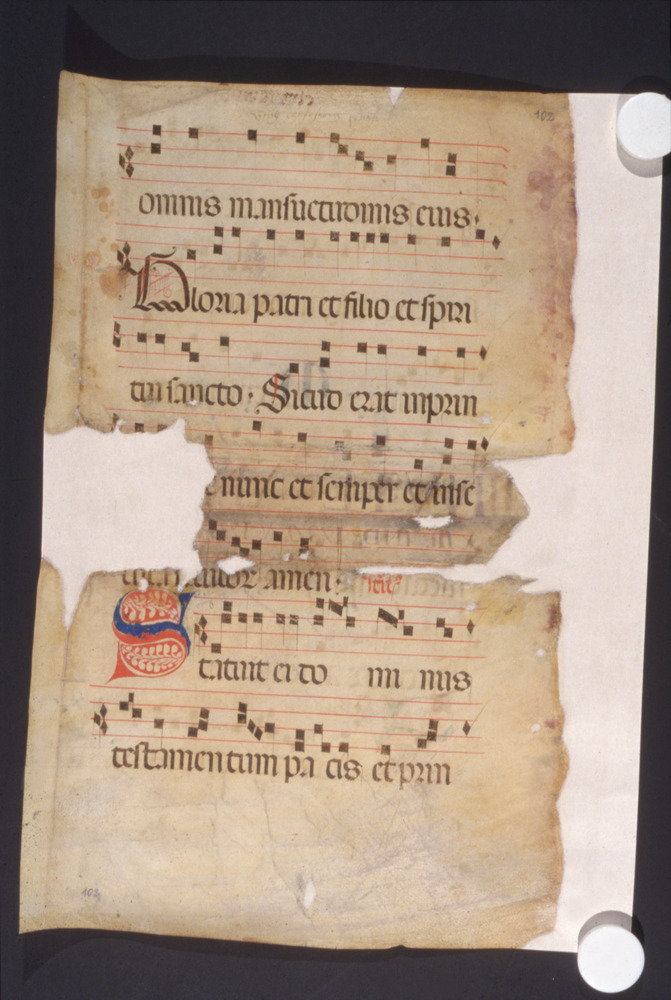 102
omnis mansuetudinis eius.
Gloria patri et filio et spiri
tui sancto. Sicut erat inprin
nunc et semper et inse
amen.
Statuit ei do mi nus
testamentum pa cis et prin
102